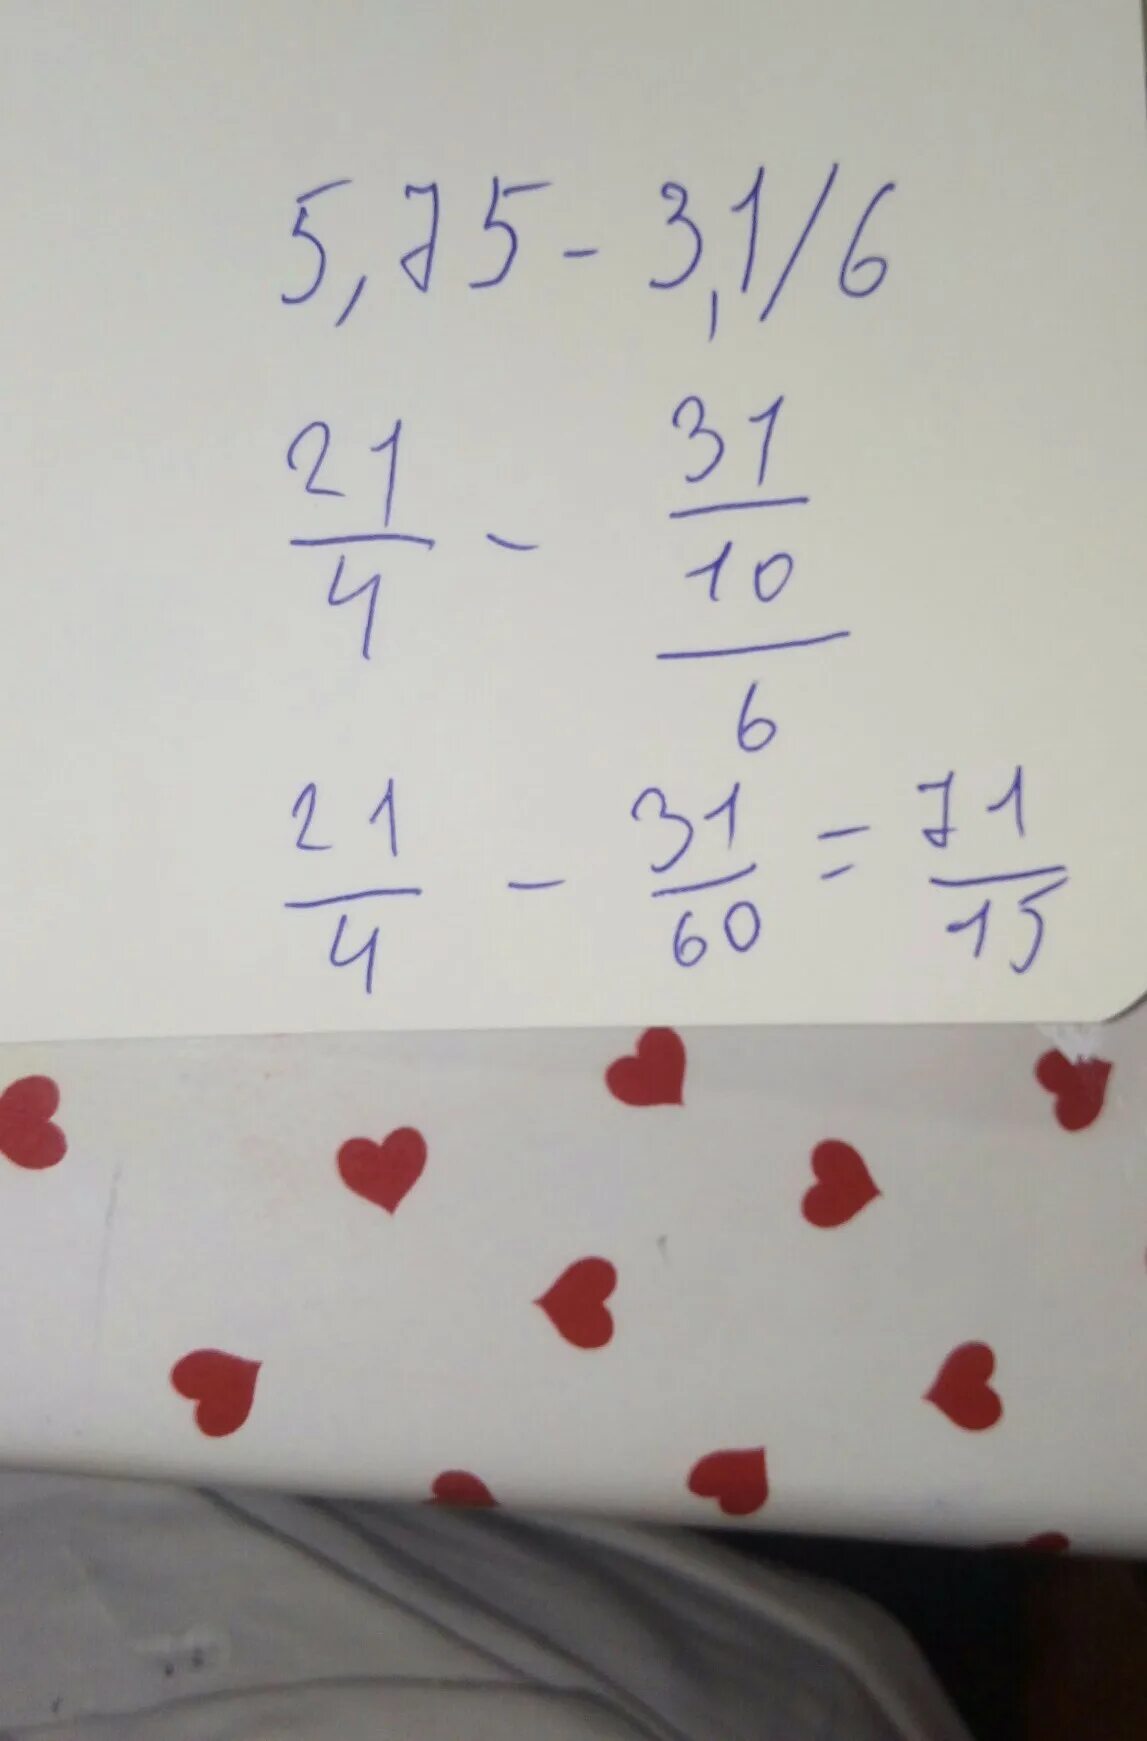 5,75 - 3,1/6
21/4 - 31/10/6
21/4 - 31/60 = 71/15